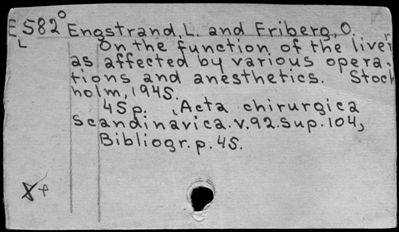 E582° Engstrand, L. and Friberg, O.
L On the function of the liver
as affected by various opera-
tions and anesthetics. Stock
holm, 1945.
45p. (Acta chirurgica
scandinavica. v. 92. Sup. 104)
Bibliogr. p. 45.